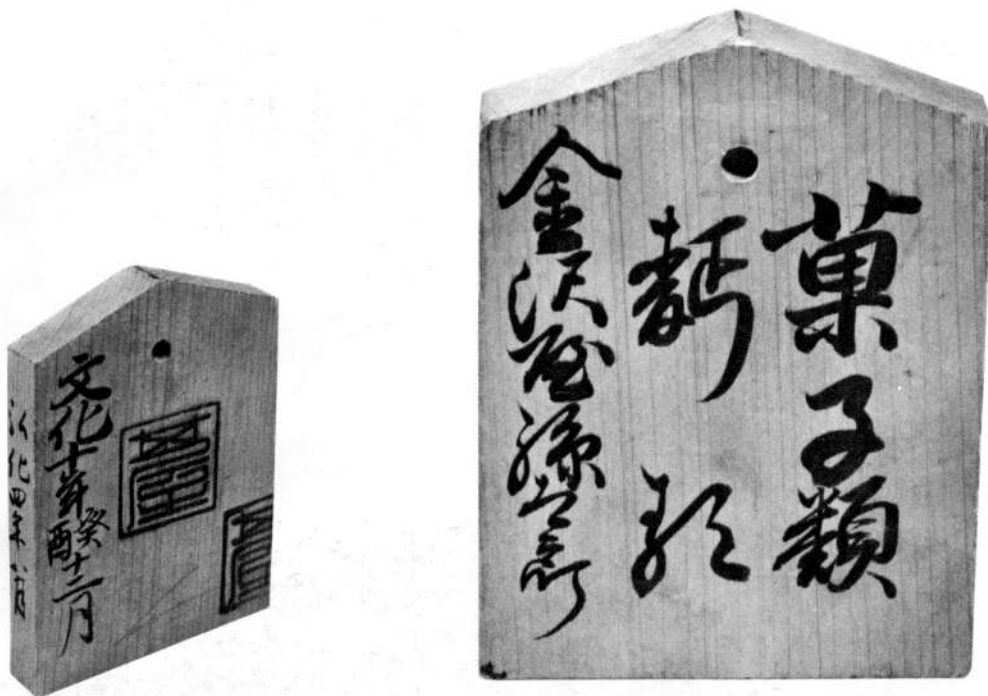 菓子類
麪類
金沢屋孫
文化十年癸酉十二月
弘化四年八月